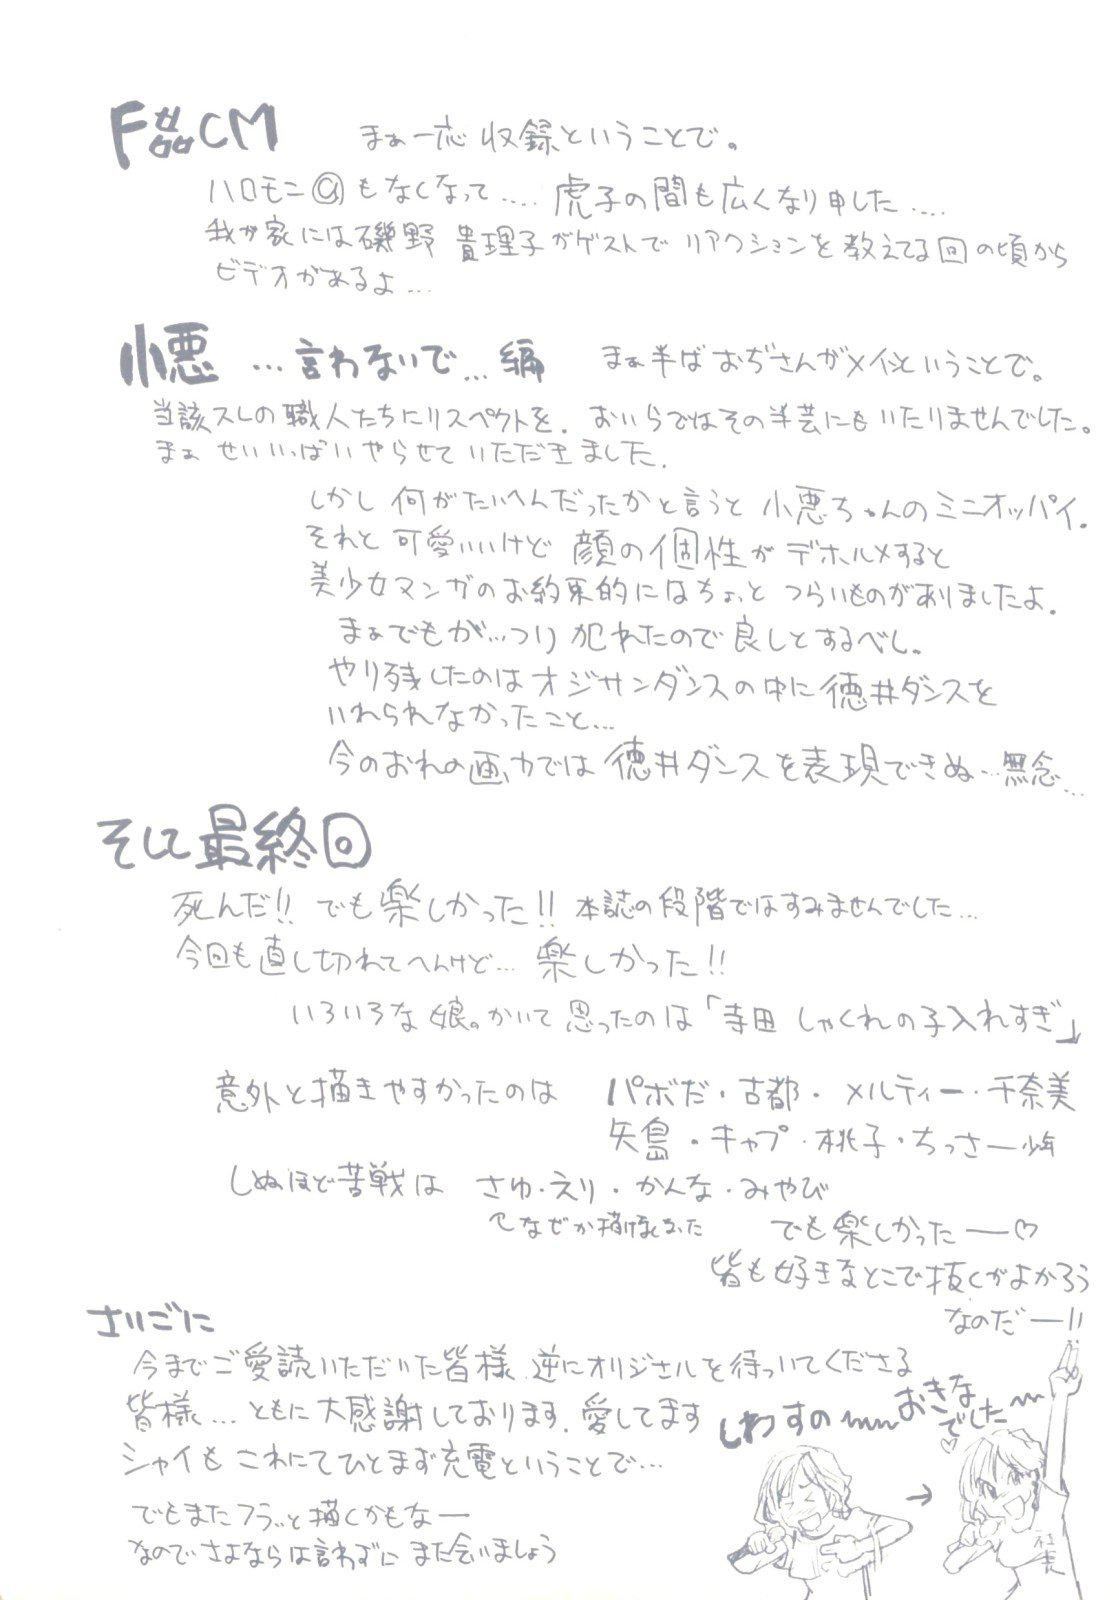 F CM まぁ一応 収録ということで。
ハロモニ@もなくなって.... 虎子の間も広くなり申した....
我が家には磯野 貴理子がゲストで リアクションを教えてる回の頃から
ビデオがあるよ...
小悪 ...言わないで...編 まぁ半ばおぢさんがメインということで。
当該スレの職人たちにリスペクトを. おいらではその半芸にもいたりませんでした。
まぁ せいいっぱいやらせていただきました.
しかし 何がたいへんだったかと言うと 小悪ちゃんのミニオッパイ.
それと 可愛いいけど 顔の個性が デホルメすると
美少女マンガのお約束的にはちょっと つらいものがありましたよ.
まぁでもが...つり 犯れたので良しとするべし。
やり残したのはオジサンダンスの中に徳井ダンスを
いれられなかったこと...
今のおれの画力では 徳井ダンスを表現できぬ...無念...
そして最終回
死んだ!! でも楽しかった!! 本誌の段階ではすみませんでした...
今回も直し切れてへんけど... 楽しかった!!
いろいろな娘。かいて 思ったのは「寺田 しゃくれの子入れすぎ」
意外と描きやすかったのは パボだ・古都・メルティー・千奈美
矢島・キャプ・桃子・ちっさー少年
しぬほど苦戦は さゆ・えり・かんな・みやび
なぜか でも楽しかったー♡
皆も好きなとこで抜くがよかろう
なのだー!!
さいごに
今までご愛読いただいた皆様 逆にオリジナルを待っていてくださる
皆様...ともに大感謝しております. 愛してます
シャイも これにてひとまず充電ということで...
でもまたフラッと描くかもなー
なので さよならは言わずに また会いましょう
しわすの〜 おきな
でした〜
♡
→